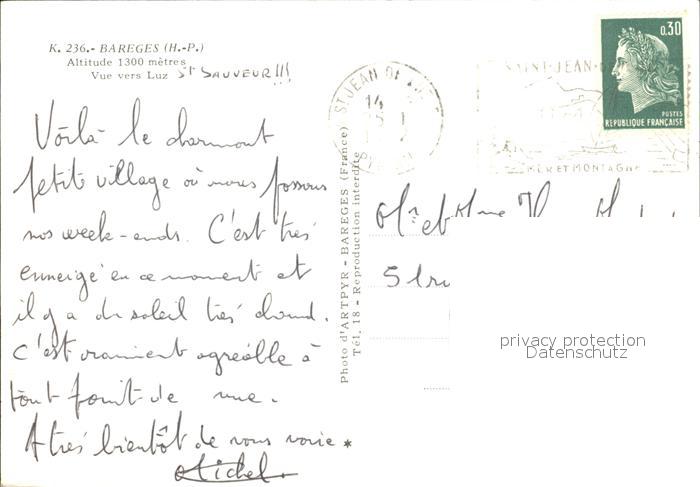 K. 236.- BAREGES (H.-P.)
Altitude 1300 mètres
Vue vers Luz St SAUVEUR!!!
Voilà le charmant
petit village où nous passons
nos week-ends. C'est très
enneigé en ce moment et
il y a du soleil très chaud.
C'est vraiment agréable à
tout point de vue.
A très bientôt de vous voir
Michel
Photo d'ARTPYR - BAREGES (France)
Tél. 18 - Reproduction interdite
ST JEAN DE
14
SAINT-JEAN-D
MER ET MONTAGNE
0,30
POSTES
REPUBLIQUE FRANÇAISE
Mr et Mme
privacy protection
Datenschutz